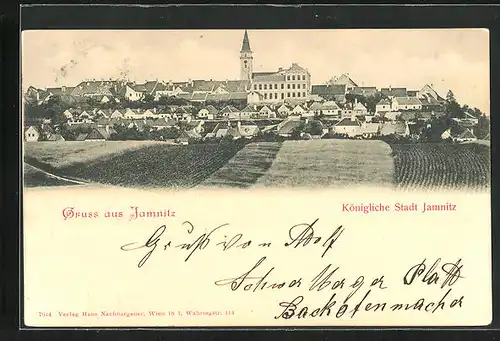 Gruss aus Jamnitz
Königliche Stadt Jamnitz
Gruß von Adolf
Schwer Platz
Backofenmacher
7914 Verlag Hans Nachbargauer, Wien 18/1, Währingstr. 114